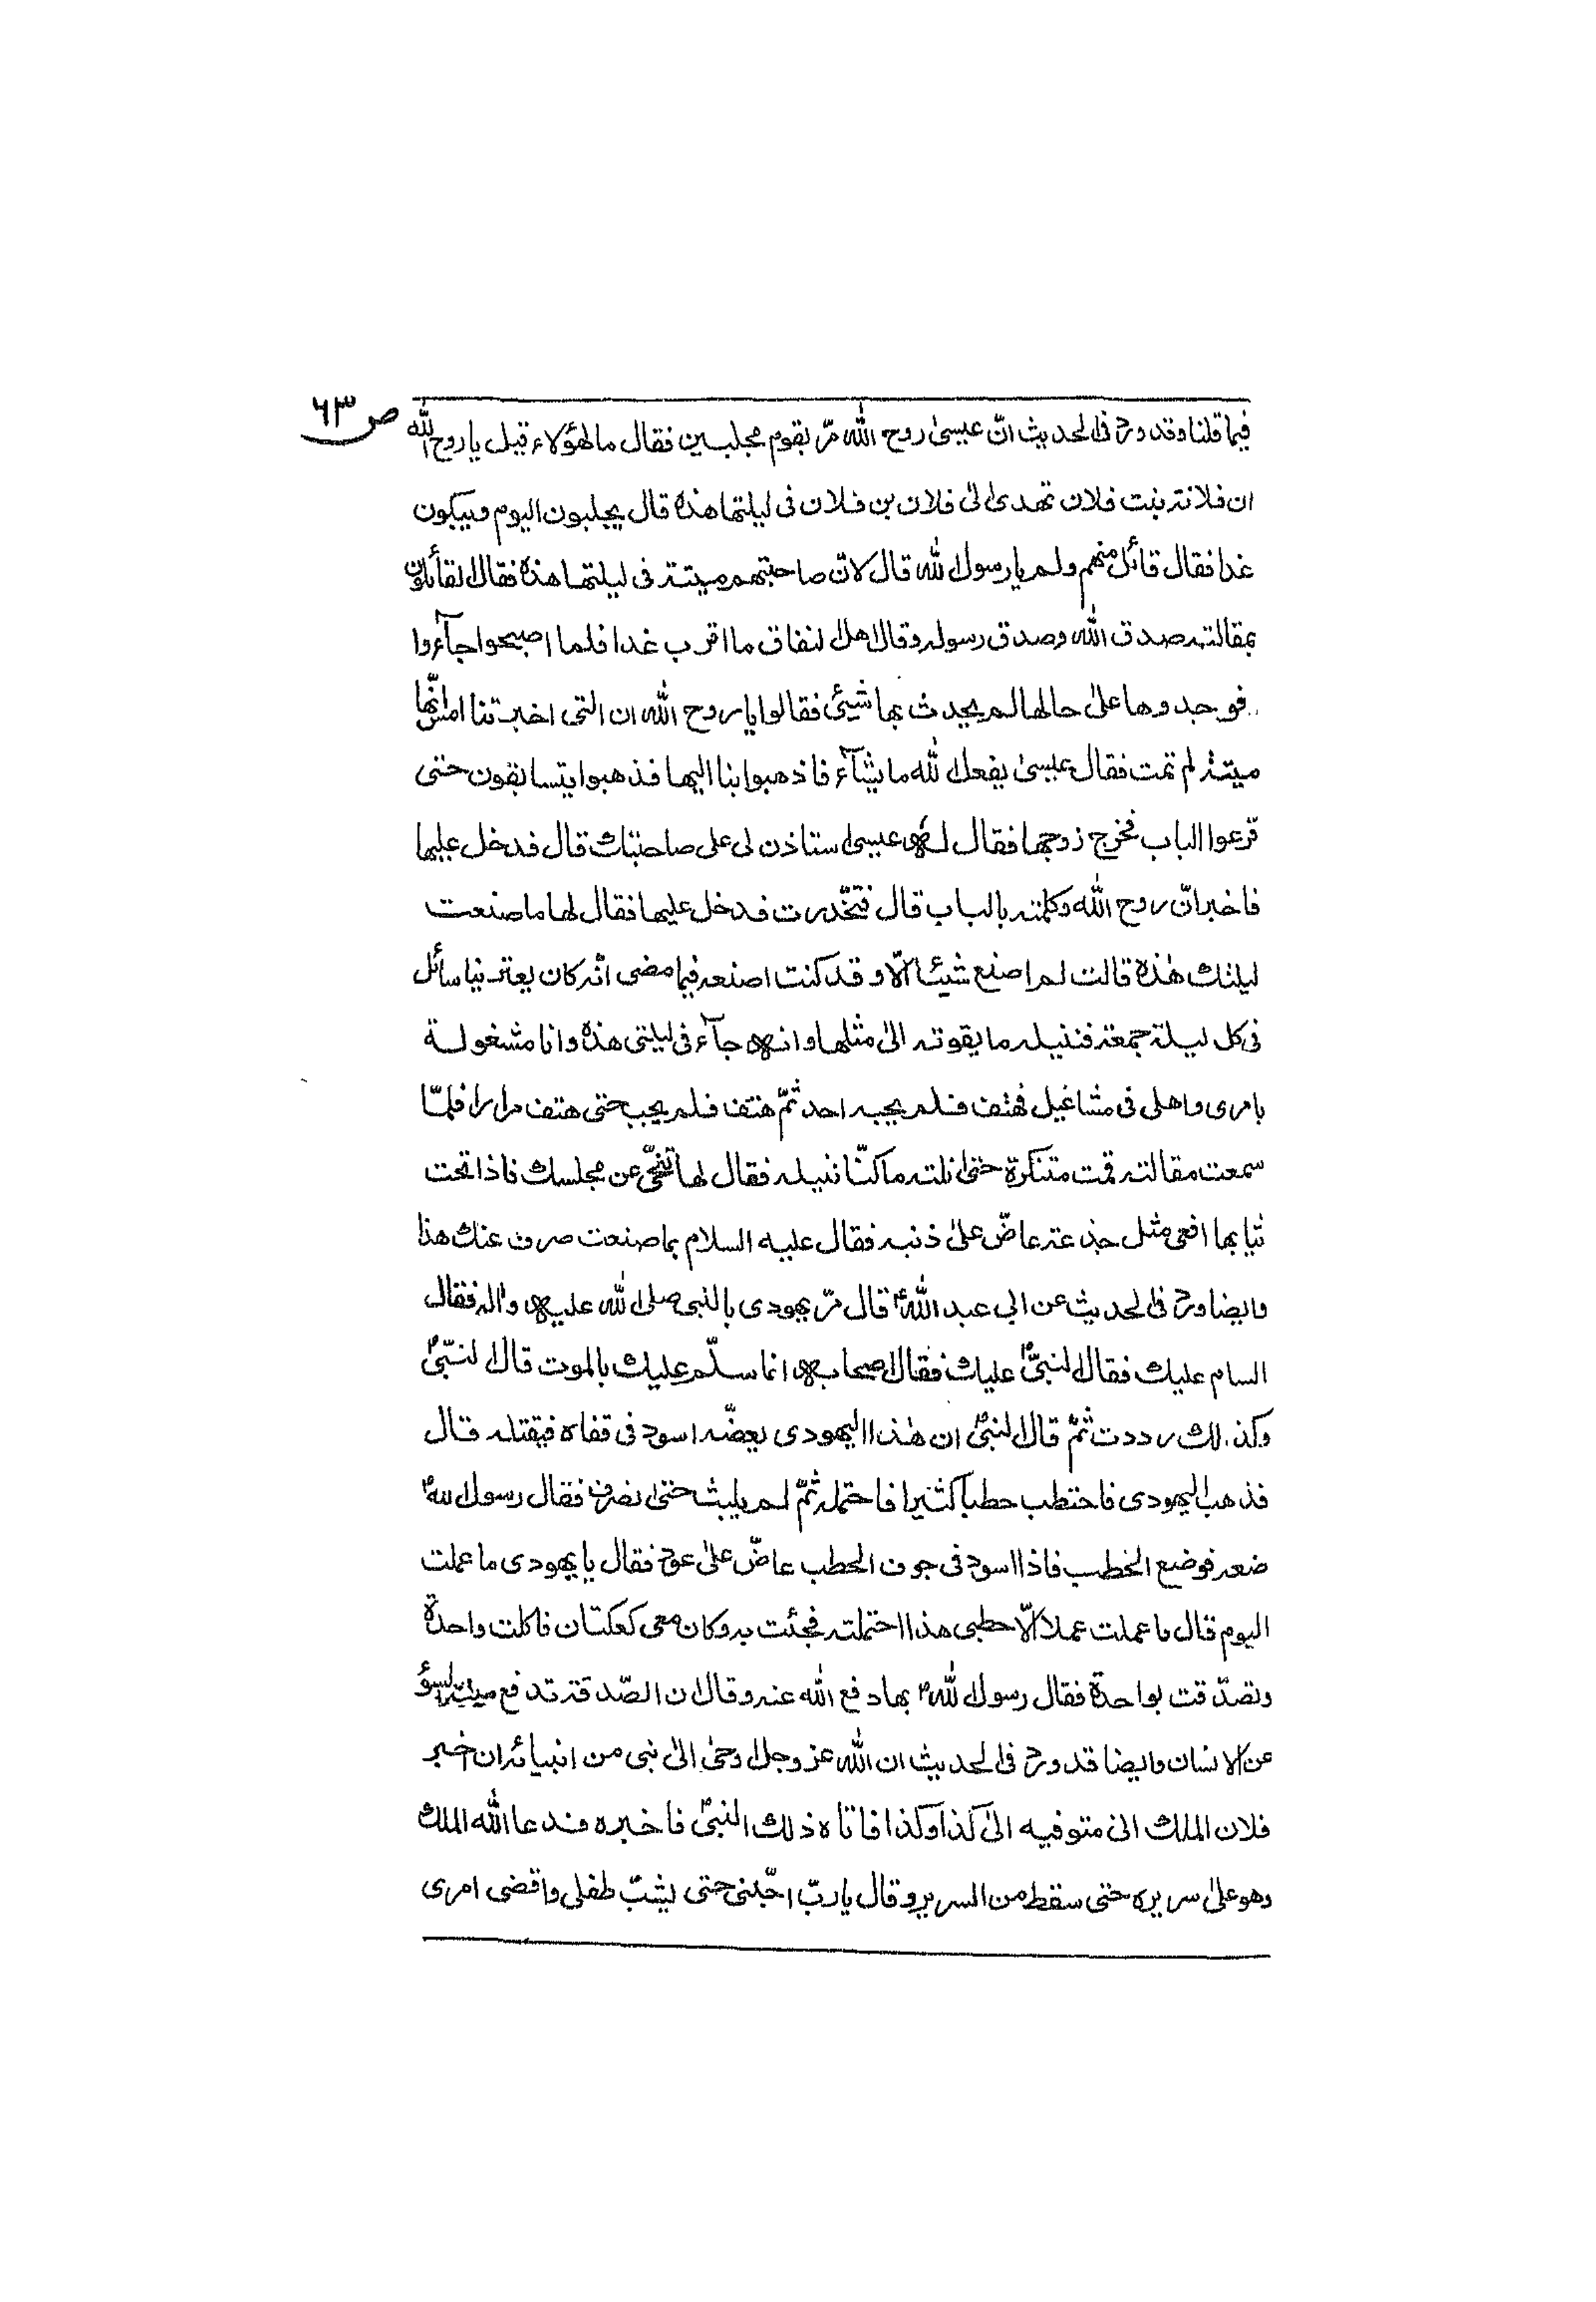 ص ٦٣
فيما قلنا وقد ورد فى الحديث انّ عيسىٰ روح اللّٰه مرّ بقوم مجلبين فقال ما لهؤلاء قيل يا روح اللّٰه
ان فلانة بنت فلان تهدى الى فلان بن فلان فى ليلتها هذه قال يجلبون اليوم ويبكون
غدا فقال قائل منهم ولم يا رسول اللّٰه قال لانّ صاحبتهم ميتة فى ليلتها هذه فقال القائلون
بمقالته صدق اللّٰه وصدق رسوله وقال اهل النفاق ما اقرب غدا فلما اصبحوا جآءوا
فوجدوها علىٰ حالها لم يحدث بها شيئ فقالوا يا روح اللّٰه ان التى اخبرتنا امس انّها
ميتة لم تمت فقال عيسىٰ يفعل اللّٰه ما يشآء فاذهبوا بنا اليها فذهبوا يتسابقون حتى
قرعوا الباب فخرج زوجها فقال له عيسىٰ استاذن لى على صاحبتك قال فدخل عليها
فاخبر انّ روح اللّٰه وكلمته بالباب قال فتخدّرت فدخل عليها فقال لها ما صنعت
ليلتك هٰذه قالت لم اصنع شيئا الّا وقد كنت اصنعه فيما مضى انّه كان يعترينا سائل
فى كل ليلة جمعة فننيله ما يقوته الىٰ مثلها وانه جآء فى ليلتى هذه وانا مشغولة
بامرى واهلى فى مشاغيل فهتف فلم يجبه احد ثمّ هتف فلم يجب حتى هتف مرارا فلمّا
سمعت مقالته قمت متنكرة حتىٰ نلته ما كنّا ننيله فقال لها تنحّى عن مجلسك فاذا تحت
ثيابها افعى مثل جذعة عاضّ علىٰ ذنبه فقال عليه السلام بما صنعت صرف عنك هذا
وايضا ورد فى الحديث عن ابى عبد اللّٰه ع قال مرّ يهودى بالنبى صلى اللّٰه عليه وآله فقال
السام عليك فقال النبىّ ص عليك فقال اصحابه انما سلّم عليك بالموت قال النبىّ ص
وكذلك رددت ثمّ قال النبىّ ص ان هٰذا اليهودى يعضّه اسود فى قفاه فيقتله قال
فذهب اليهودى فاحتطب حطبا كثيرا فاحتمله ثمّ لم يلبث حتىٰ انصرف فقال رسول اللّٰه ص
ضعه فوضع الحطب فاذا اسود فى جوف الحطب عاضّ علىٰ عود فقال يا يهودى ما عملت
اليوم قال ما عملت عملا الّا حطبى هذا احتملته فجئت به وكان معى كعكتان فاكلت واحدة
وتصدّقت بواحدة فقال رسول اللّٰه ص بها دفع اللّٰه عنه وقال ان الصّدقة تدفع ميتة السوٓ
عن الانسان وايضا قد ورد فى الحديث ان اللّٰه عز وجل اوحىٰ الىٰ نبى من انبيائه ان اخبر
فلان الملك انى متوفيه الىٰ كذا وكذا فاتاه ذلك النبىّ فاخبره فدعا اللّٰه الملك
وهو علىٰ سريره حتى سقط من السرير وقال يا ربّ اجّلنى حتى يشبّ طفلى واقضى امرى